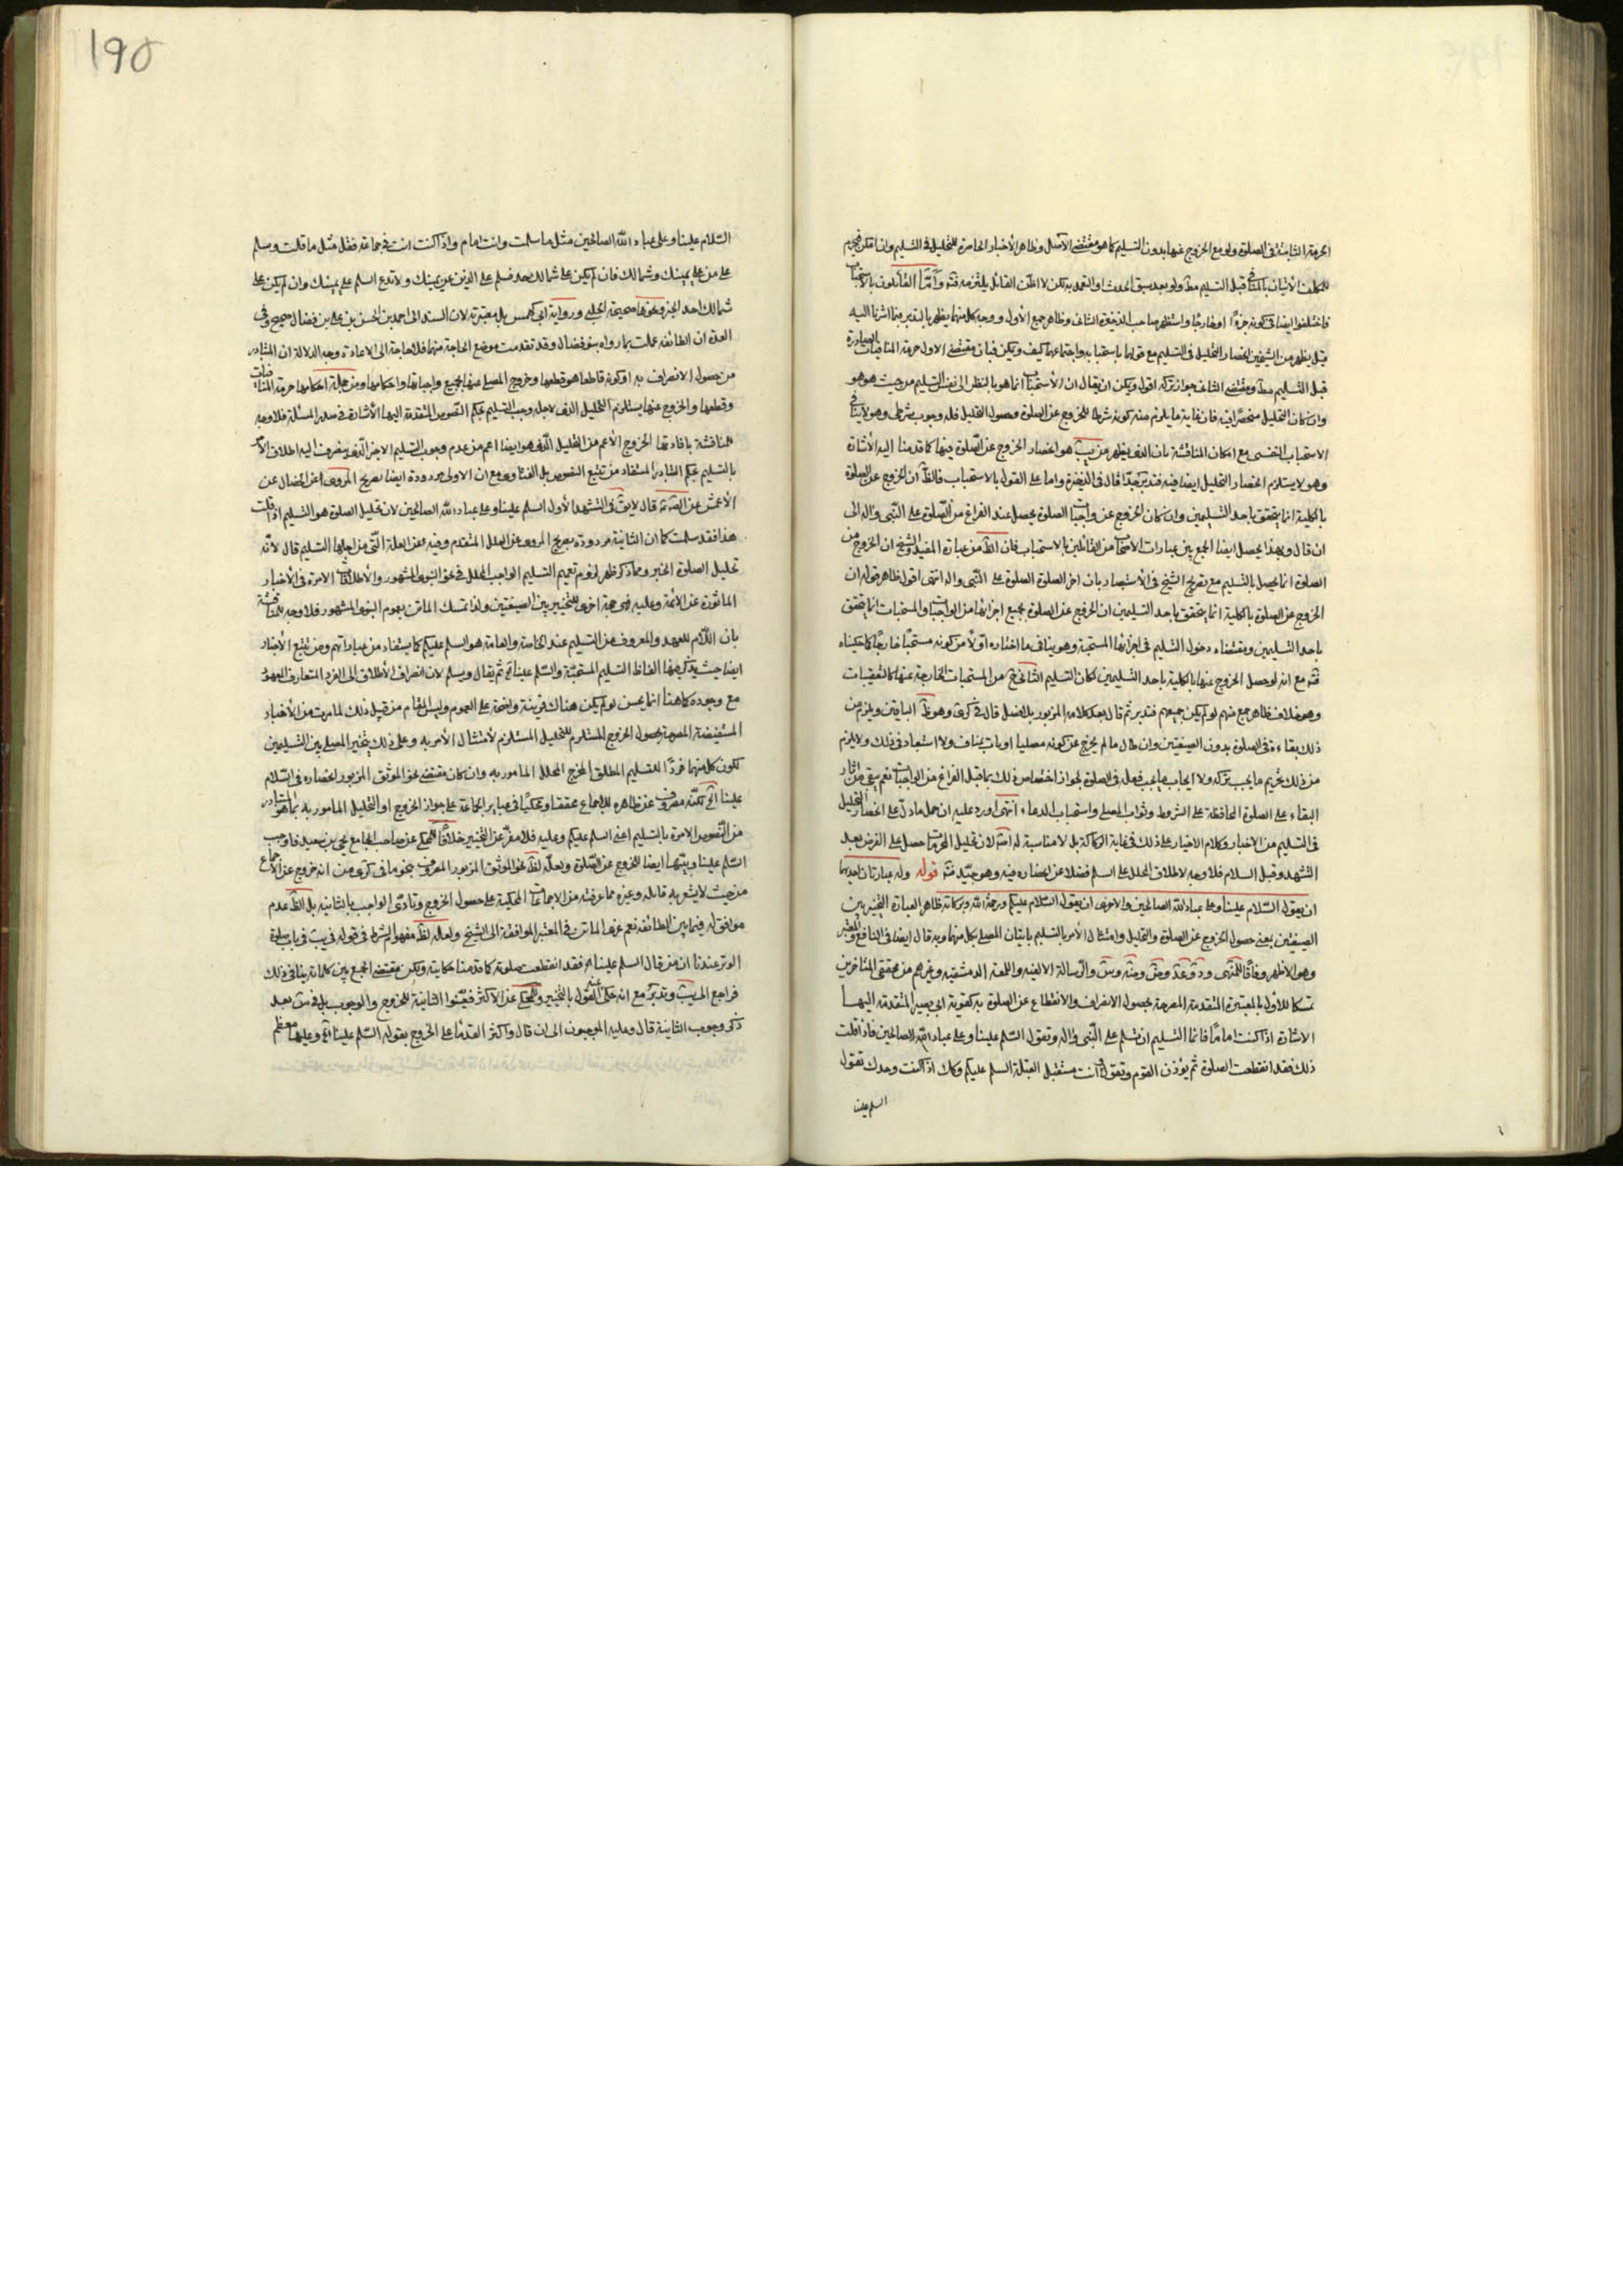 الحرمة الثابتة فى الصلوة ولو مع الخروج عنها بدون التسليم كما هو مقتضى الأصل وظاهر الأخبار الحاصرة للتحليل فى التسليم وان لم نقل
للمكلف الأتيان بالمنافى قبل التسليم مط ولو بعد سبق الحدث او التعمد به لكن لا اظن القائل يلتزمه فتد وأمّا القائلون بالاستحباب
فاختلفوا ايضا فى كونه جزءًا او خارجًا واستظهر صاحب الذخيرة الثانى وظاهر جمع الأول ووجه كل منهما يظهر بالتدبر فيما اشرنا اليه
قبل يظهر من الشيخين انحصار التحليل فى التسليم مع قولهما باستحبابه واجتماعهما كيف ويكون قبيان مقتضى الاول حرمة المنافيات
قبل التسليم مط ومقتضى الثانى جواز تركه اقول ويمكن ان يقال ان الأستحباب انما هو بالنظر الى نفس التسليم من حيث هو هو
وان كان التحليل منحصرًا فيه فان غاية ما يلزم منه كونه شرطا للخروج عن الصلوة وحصول التحليل فله وجوب شرطى وهو لا ينافى
الاستحباب النفسى مع امكان المناقشة بان الذى يظهر من يب هو انحصار الخروج عن الصلوة فيها كما قدمنا اليه الأشارة
وهو لا يستلزم انحصار التحليل ايضا فيه فتدبر جدّا قال فى الذخيرة واما على القول بالاستحباب فالظّ ان الخروج عن الصلوة
بالكلية انما يتحقق باحد التسليمين وان كان الخروج عن واجبات الصلوة يحصل عند الفراغ من الصلوة على النبى واله الى
ان قال وبهذا يحصل ايضا الجمع بين عبارات الاصحاب من القائلين بالاستحباب فان الظّ من عبارة المفيد والشيخ ان الخروج من
الصلوة انما يحصل بالتسليم مع تصريح الشيخ فى الأستبصار بان اخر الصلوة الصلوة على النبى واله انتهى اقول ظاهر قوله ان
الخروج عن الصلوة بالكلية انما يتحقق باحد التسليمين ان الخروج عن الصلوة بجميع اجزائها من الواجبات والمستحبات انما يتحقق
باحد التسليمين ومقتضاه دخول التسليم فى اجزائها المستحبة وهو ينافى ما اختاره اولًا من كونه مستحبًا خارجًا كما حكيناه
فتد مع انه لو حصل الخروج عنها بالكلية باحد التسليمين لكان التسليم الثانى ح من المستحبات الخارجة عنها كالتعقيبات
وهو خلاف ظاهر جمع منهم لو لم يكن جميعهم فتدبر ثم قال بعد كلامه المزبور بلا فصل قال فى كرى وهو ظّ الباقين ويلزم من
ذلك بقاءه فى الصلوة بدون الصيغتين وان طال ما لم يخرج عن كونه مصليا او يات بمناف ولا استبعاد فى ذلك ولا يلزم
من ذلك تحريم ما يجب تركه ولا ايجاب ما يجب فعله فى الصلوة لجواز اختصاص ذلك بما قبل الفراغ من الواجبات نعم يبقى من اثار
البقاء على الصلوة المحافظة على الشروط وثواب المصلى واستحباب الدعاء انتهى اورد عليه ان حمل ما دل على انحصار التحليل
فى التسليم من الاخبار وكلام الاخيار على ذلك فى غاية الركاكة بل لا مناسبة له اصّ لان تحليل المحرمات حصل على الفرض بعد
التشهد وقبل السلام فلا وجه لاطلاق المحلل على اسلم فضلا عن انحصاره فيه وهو جيّد فتد قوله وله عبارتان احديهما
ان يقول السّلام علينا وعلى عباد الله الصالحين والاخرى ان يقول السّلام عليكم ورحمة الله وبركاته ظاهر العبارة التخيير بين
الصيغتين بمعنى حصول الخروج عن الصلوة والتحليل وامتثال الأمر بالتسليم باتيان المصلى بكل منهما وبه قال ايضا فى النافع والمعتبر
وهو الأظهر وفاقًا للمنتهى ود وعد وضة وس والرسالة الالفية واللمعة الدمشقية وغيرهم من محققى المتأخرين
تمسكا للاول بالمعتبرة المتقدمة المصرحة بحصول الانصراف والانقطاع عن الصلوة به كقوية ابى بصير المتقدمة اليهـا
الاشارة اذا كنت امامًا فانما التسليم ان تسلم على النبى واله وتقول السّلم علينا وعلى عباد الله الصالحين فاذا قلت
ذلك فقد انقطعت الصلوة ثم يؤذن القوم وتقول وانت مستقبل القبلة السلم عليكم وكك اذا كنت وحدك تقول
السلم علينا
١٩٥
السّلام علينا وعلى عباد الله الصالحين مثل ما سلمت وانت امام واذا كنت انت فى جماعة فقل مثل ما قلت وسلم
على من على يمينك وشمالك فان لم يكن على شمالك احد فسلم على الذين عن يمينك ولا تدع السلم على يمينك وان لم يكن على
شمالك احد الخبر ونحوها صحيحة الحلبى ورواية ابى كهمس بل معتبرته لان السند الى احمد بن الحسن بن على بن فضال صحيح وفى
العدة ان الطائفة عملت بما رواه بنو فضال وقد تقدمت موضع الحاجة منهما فلا حاجة الى الاعادة وجه الدلالة ان المتبادر
من حصول الانصراف به او كونه قاطعا هو قطعها وخروج المصلى عنها بجميع واجباتها واحكامها ومن جملة احكامها حرمة المنافيات
وقطعها والخروج عنها يستلزم التحليل الذى لاجله وجب التسليم بحكم النّصوص المتقدمة اليها الأشارة فى صدر المسئلة فلا وجه
للمناقشة بافادتها الخروج الأعم من التحليل الذى هو ايضا اعم من عدم وجوب التسليم الاخر الذى ينصرف اليه اطلاق الأمر
بالتسليم بحكم التبادر المستفاد من تتبع النصوص بل الفتاوى مع ان الاولى مردودة ايضا بصريح المروى عن الخصال عن
الأعمش عن الصّ قال لا يقّ فى التشهد الأول السلم علينا وعلى عباد الله الصالحين لان تحليل الصلوة هو التسليم اذا قلت
هذا فقد سلمت كما ان الثانية مردودة بصريح المروى عن العلل المتقدم وفيه عن العلة الّتى من اجلها التسليم قال لأنّه
تحليل الصلوة الخبر ومما ذكر ظهر لزوم تعميم التسليم الواجب المحلل فى نحو النبوى المشهور والأطلاقات الامرة فى الأخبار
الماثورة عن الائمة وعليه فهى حجة اخرى للتخيير بين الصيغتين ولذا تمسك الماتن بعموم النبوى المشهور فلا وجه للمناقشة
بان اللّام للعهد والمعروف من التسليم عند الخاصة والعامة هو السلم عليكم كما يستفاد من عباراتهم ومن تتبع الأخبار
ايضا حيث يذكر فيها الفاظ التسليم المستحبّة والسّلم علينا الخ ثم يقال ويسلم لان انصراف الأطلاق الى الفرد المتعارف المعهود
مع وجوده كما هنا انما يحسن لو لم يكن هناك قرينة واضحة على العموم وليس المقام من قبيل ذلك لما مرت من الأخبار
المستفيضة المصرحة بحصول الخروج المستلزم للتحليل المستلزم لأمتثال الأمر به وعلى ذلك يتخير المصلى بين التسليمين
لكون كل منهما فردًا للتسليم المطلق المخرج المحلل المامور به وان كان مقتضى نحو الموثق المزبور انحصاره فى السّلام
علينا الخ لكنّه مصروف عن ظاهره للاجماع محققا ومحكيًا فى عبائر الجماعة على جواز الخروج او التحليل المامور به بما هو المتبادر
من النّصوص الامرة بالتسليم اعنى السلم عليكم وعليه فلا مفرّ عن التخيير خلافًا للمحكى عن صاحب الجامع يحيى بن سعيد فاوجب
السّلم علينا وعيّنها ايضا للخروج عن الصّلوة ولعلّه لظّ نحو الموثق المزبور المعروف بنحو ما فى كرى من انه خروج عن الأجماع
من حيث لا يشعر به قائله وغيره مما عرفته من الاجماعات المحكية على حصول الخروج وتادى الواجب بالثانية بل الظّ عدم
موافق له فيما بين الطائفة نعم عزى الماتن فى المعتبر الموافقة الى الشيخ ولعله لظّ مفهوم الشرط فى قوله فى يب فى باب صلوة
الوتر عندنا ان من قال السلم علينا اه فقد انقطعت صلوته كما قدمنا حكايته ولكن مقتضى الجمع بين كلماته ينافى ذلك
فراجع المريب وتدبّر مع انه حكى عنه القول بالتخيير وللمحكى عن الأكثر فعيّنوا الثانية للخروج والوجوب بل فى س بعد
ذكر وجوب الثانية قال وعليه الموجبون الى ان قال واكثر القدماء على الخروج بقوله السّلم علينا الخ وعليها معظم